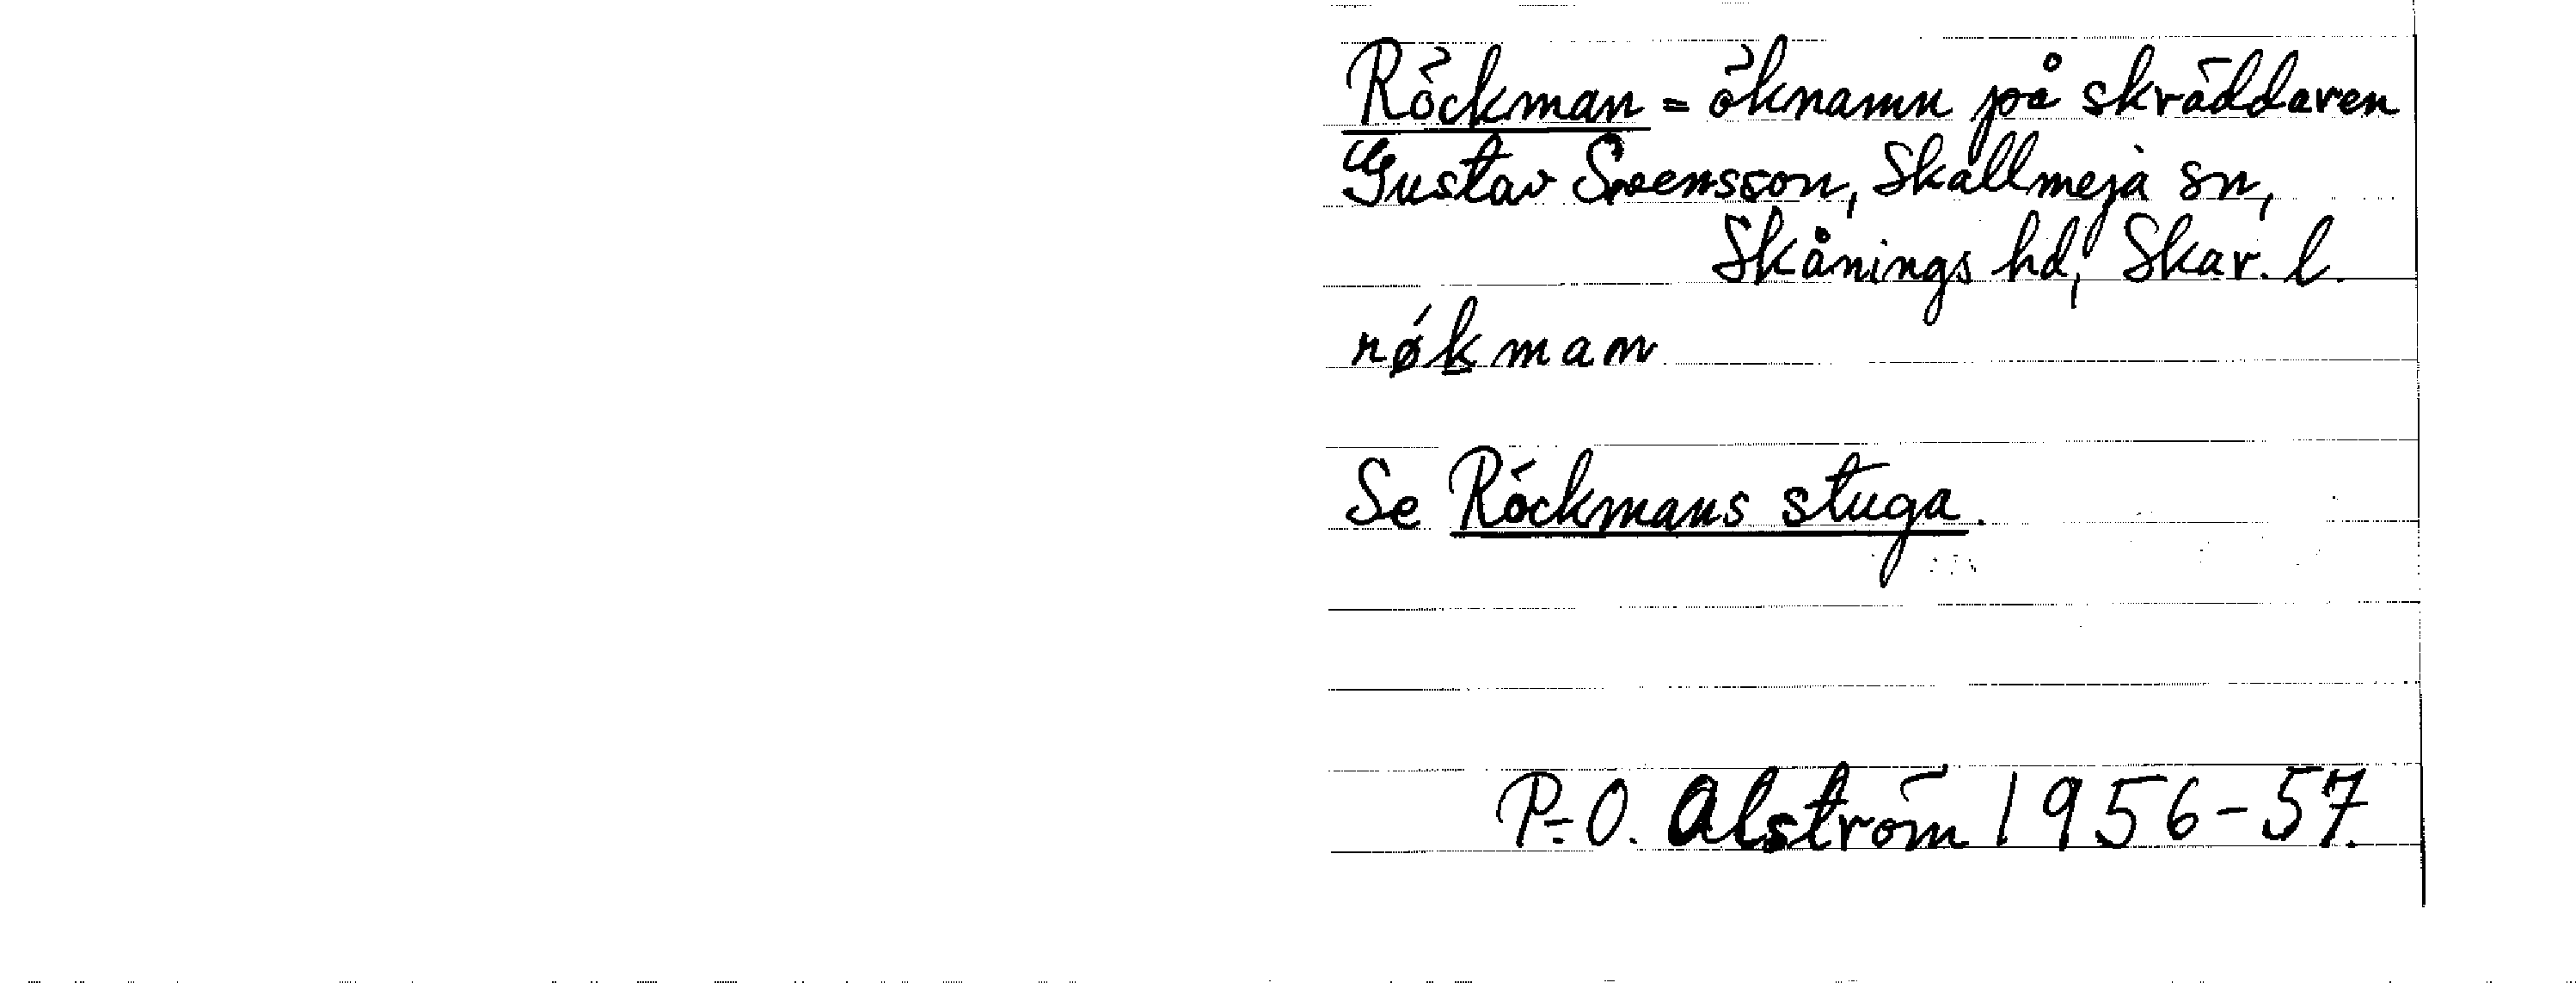 Röckman = öknamn på skräddaren
Gustav Svensson, Skallmeja sn,
Skånings hd, Skar. l.
røkman
Se Röckmans stuga.
P-O. Alström 1956-57.